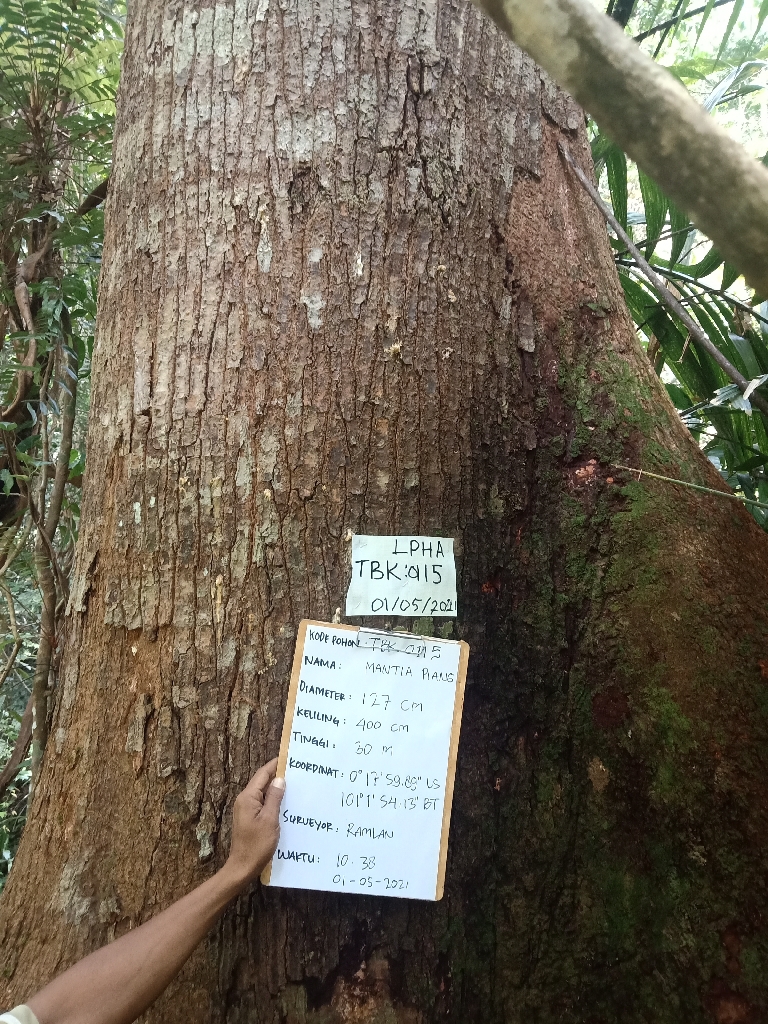 LPHA
TBK:015
01/05/2021
KODE POHON: TBK 015
NAMA: MANTIA PIANG
DIAMETER: 127 cm
KELILING: 400 cm
TINGGI: 30 m
KOORDINAT: 0° 17' 59.89" US
101° 1' 54.13" BT
SURVEYOR: RAMLAN
WAKTU: 10.38
01-05-2021